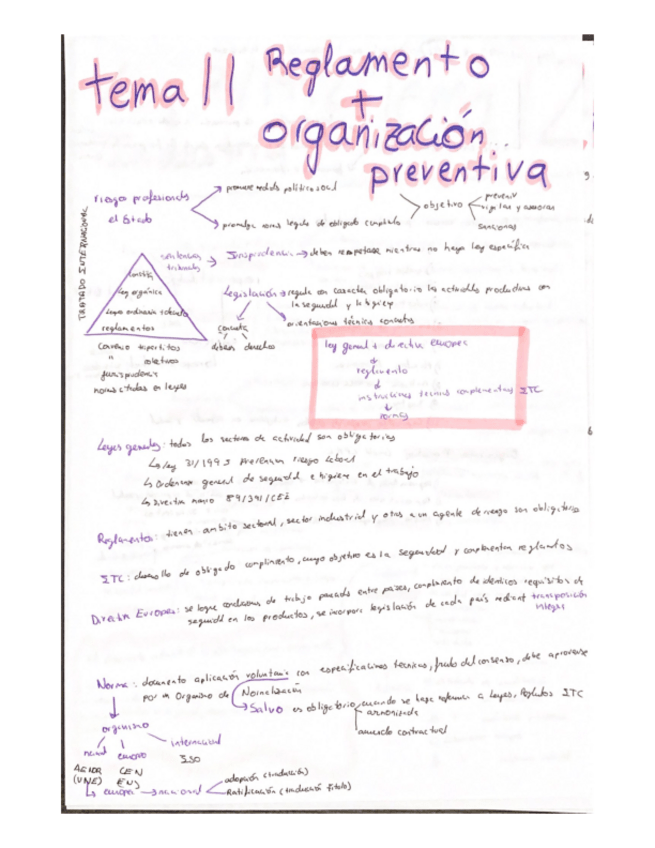 tema 11 Reglamento
+
organización
preventiva
riesgos profesionales
el Estado
promueve modelo político social
promulga como legislo de obligado cumplimiento
objetivo
prevenir
vigilar y asesorar
sancionar
TRATADO INTERNACIONAL
sentencias
tribunales
Jurisprudencia → deben respetarse mientras no haya ley específica
ley orgánica
reglamentos
Legislación → regula con carácter obligatorio las actividades productivas con
la seguridad y la higiene
orientaciones técnicas concretas
concreta
deberes derechos
colectivos
jurisprudencia
ley general + directiva europea
reglamento
instrucciones técnicas complementarias ITC
normas
Leyes generales: todos los sectores de actividad son obligatorias
↳ ley 31/1995 prevención riesgo laboral
↳ ordenanza general de seguridad e higiene en el trabajo
↳ Directiva marco 89/391/CEE
Reglamentos: tienen ámbito sectorial, sector industrial y otras a un agente de riesgo son obligatorio
ITC: desarrollo de obligado cumplimiento, cuyo objetivo es la seguridad y complementan reglamentos
Directiva Europea: se logre condiciones de trabajo parecidas entre países, cumplimiento de idénticos requisitos de
seguridad en los productos, se incorpora legislación de cada país mediante transposición
integra
Norma: documento aplicación voluntaria con especificaciones técnicas, fruto del consenso, debe aprobarse
por un Organismo de Normalización
↳ Salvo es obligatorio, cuando se hace referencia a leyes, Reglamentos ITC
armonizada
acuerdo contractual
organismo
nacional europeo internacional
AENOR CEN ISO
(UNE) EN
↳ europea → nacional
adopción (traducción)
Ratificación (traducción título)